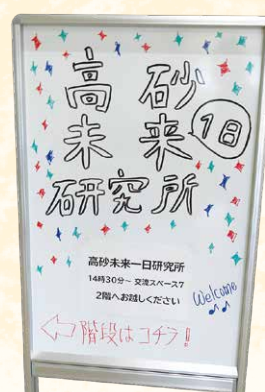 高砂
未来
1日
研究所
高砂未来一日研究所
14時30分~ 交流スペース7
2階へお越しください
Welcome
階段はコチラ!